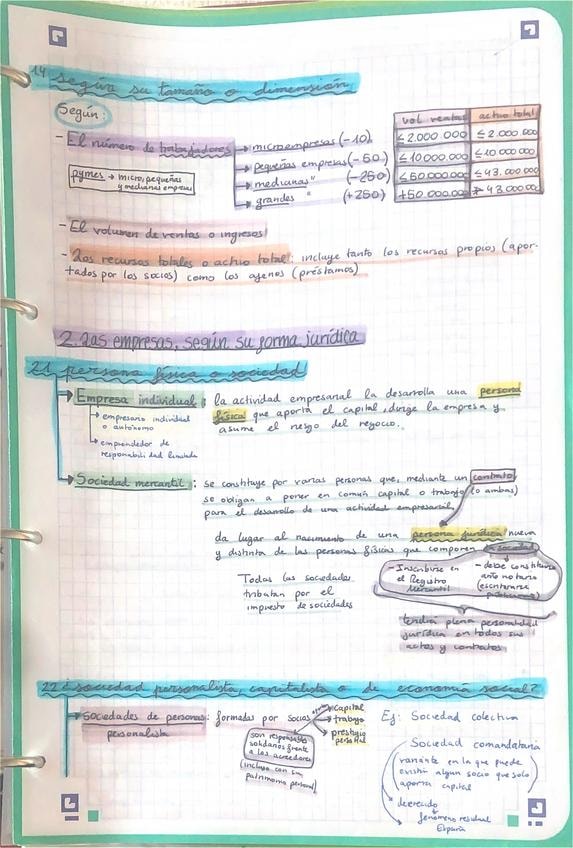 1.4 según su tamaño o dimensión
Según:
- El número de trabajadores
microempresas (-10)
pequeñas empresas (-50)
medianas " (-250)
grandes " (+250)
pymes → micro, pequeñas
y medianas empresas
vol ventas activo total
≤ 2.000.000 ≤ 2.000.000
≤ 10.000.000 ≤ 10.000.000
≤ 50.000.000 ≤ 43.000.000
+50.000.000 43.000.000
- El volumen de ventas o ingresos
- Los recursos totales o activo total: incluye tanto los recursos propios (apor-
tados por los socios) como los ajenos (préstamos)
2. Las empresas, según su forma jurídica
2.1 persona física o sociedad
Empresa individual: la actividad empresarial la desarrolla una persona
física que aporta el capital, dirige la empresa y
asume el riesgo del negocio.
empresario individual
o autónomo
emprendedor de
responsabilidad limitada
Sociedad mercantil: se constituye por varias personas que, mediante un contrato,
se obligan a poner en común capital o trabajo (o ambas)
para el desarrollo de una actividad empresarial,
da lugar al nacimiento de una persona jurídica nueva
y distinta de las personas físicas que componen la sociedad
- Inscribirse en
el Registro
Mercantil
- debe constituirse
ante notario
(escriturarse
públicamente)
Todas las sociedades
tributan por el
impuesto de sociedades
tendrá plena personalidad
jurídica en todos sus
actos y contratos
2.2 ¿sociedad personalista, capitalista o de economía social?
Sociedades de personas: formadas por socios
personalista
capital
trabajo
prestigio
personal
son responsables
solidarios frente
a los acreedores
(incluso con su
patrimonio personal)
Ej: Sociedad colectiva
Sociedad comanditaria
variante en la que puede
existir algún socio que solo
aporta capital
fenómeno residual
España